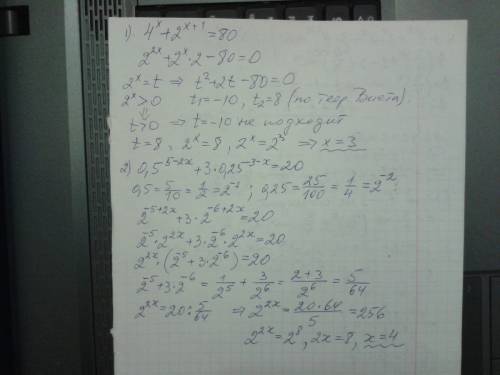 1) 4^x + 2^(x+1) = 80
2^(2x) + 2^x · 2 − 80 = 0
2^x = t ⇒ t² + 2t − 80 = 0
2^x > 0 t₁ = −10, t₂ = 8 (по теор Виета).
⇓
t > 0 ⇒ t = −10 не подходит
t = 8, 2^x = 8, 2^x = 2³ ⇒ x = 3
2) 0,5^(5−2x) + 3 · 0,25^(3−x) = 20
0,5 = 5/10 = 1/2 = 2^(−1); 0,25 = 25/100 = 1/4 = 2^(−2)
2^(−5+2x) + 3 · 2^(−6+2x) = 20
2^(−5) · 2^(2x) + 3 · 2^(−6) · 2^(2x) = 20
2^(2x) · (2^(−5) + 3 · 2^(−6)) = 20
2^(−5) + 3 · 2^(−6) = 1/2^5 + 3/2^6 = (2+3)/2^6 = 5/64
2^(2x) = 20 : 5/64 ⇒ 2^(2x) = (20 · 64)/5 = 256
2^(2x) = 2^8, 2x = 8, x = 4